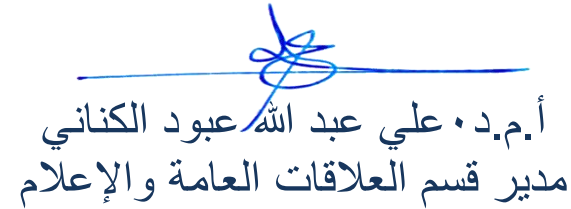 أ.م.د٠علي عبد الله عبود الكناني
مدير قسم العلاقات العامة والإعلام